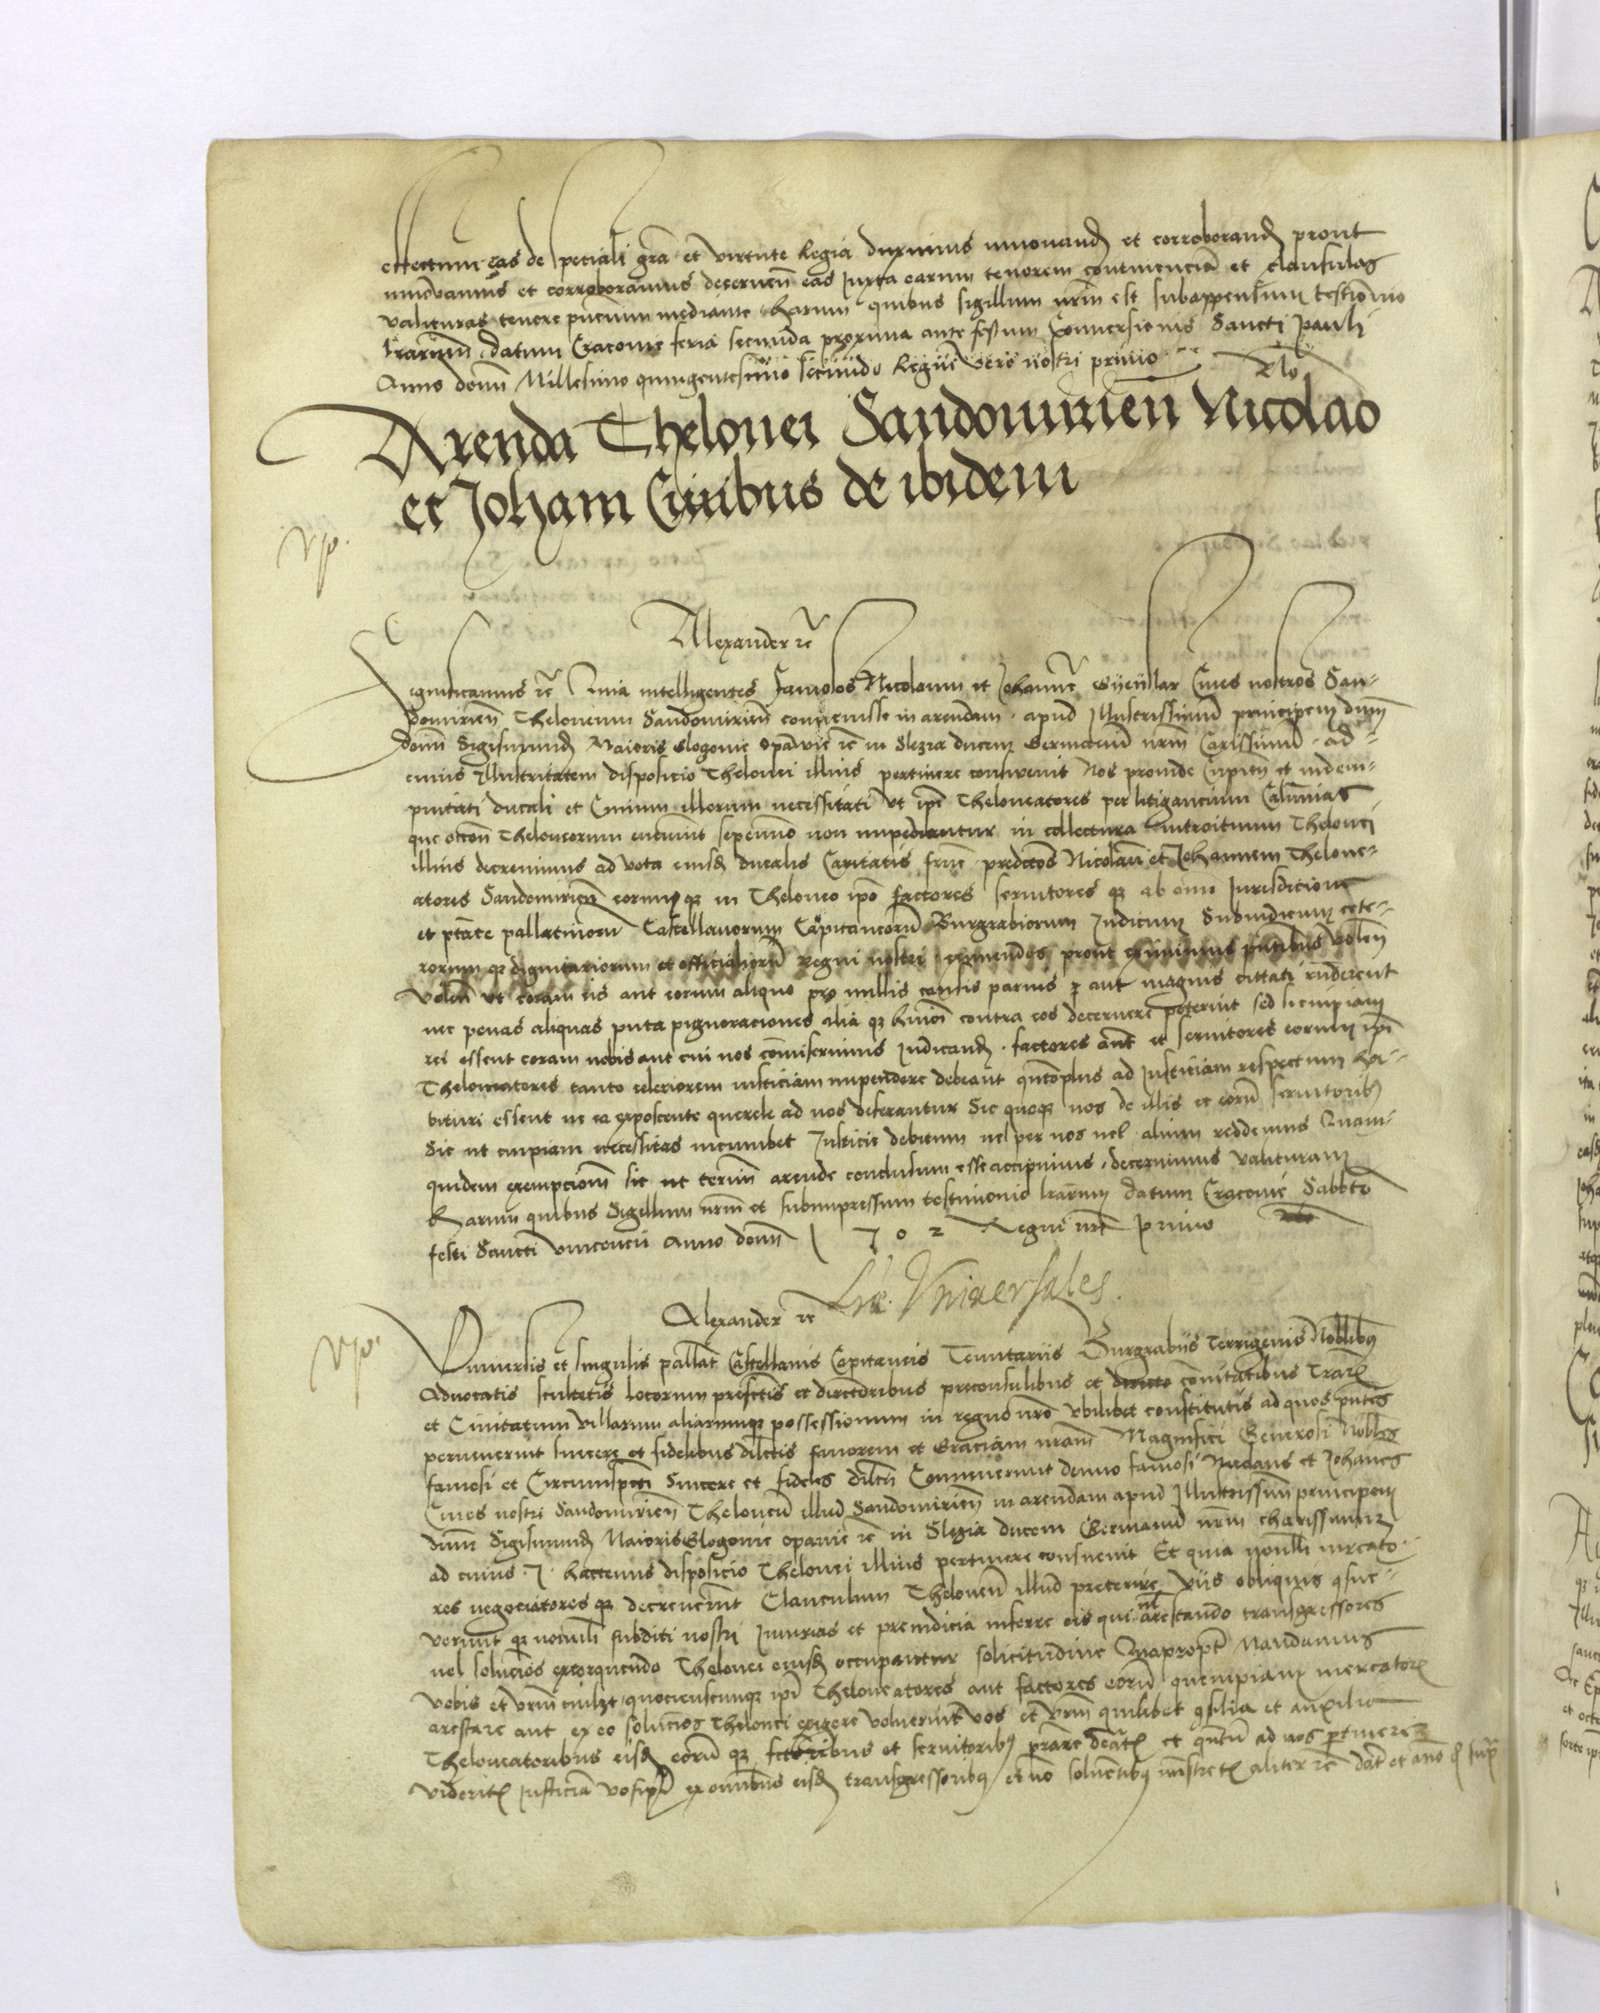 effectum eas de speciali gra et virtute Regia duximus innovand et corroborand prout
innovamus et corroboramus decernen eas Juxta earum tenorem continenciam et clausulas
valituras tenere presencium mediante harum quibus sigillum nrm est subappensum testimonio
lrarum datum Cracovie feria secunda proxima ante festum Conversionis Sancti Pauli
Anno domi Millesimo quingentesimo secundo Regni vero nostri primo
Arenda Thelonei Sandomirien Nicolao
et Joham Civibus de ibidem
Alexander rc
Significamus rc Quia intelligentes famosos Nicolaum et Johannem Cives nostros San-
domirien Theloneum Sandomirien convenisse in arendam apud Illustrissimum principem dum
domi Sigismund Maioris Glogovie Opavie rc in Slezia ducem Germanum nrm Carissimum ad
cuius Illustritatem disposicio Thelonei illius pertinere consuevit Nos proinde Cupien et indem-
pnitati ducali et Civium illorum necessitati ut ipi Theloneatores per litigancium Calumnias
que occon Theloneorum eveniunt sepenumero non impediantur in collectura et introituum Thelonei
illius decrevimus ad vota eiusd ducalis Caritatis frne predictos Nicolaum et Johannem Thelone-
atores Sandomirien eorumque in Theloneo ipo factores servitores que ab omi Jurisdicione
et ptate pallatinorum Castellanorum Capitaneorum Burgrabiorum Judicum Subiudicum cete-
rorum que dignitariorum et officialium Regni nostri eximendos prout eximimus pntibus volen
volen ut coram eis aut eorum aliquo pro nullis causis parvis aut magnis cittati rnderent
nec penas aliquas puta pignoraciones alia que huiusmodi contra eos decernere poterint sed si cuipiam
rei essent coram nobis aut cui nos comiserimus Judicand factores aut et servitores eorum ipi
Theloneatores tanto celeriorem iusticiam impendere debeant quanto plus ad Justiciam respectum ha-
bituri essent ne ea exposcente querele ad nos deferantur Sic quoque nos de illis et eorum servitoribus
Sic ut cuipiam necessitas incumbet Justicie debitum vel per nos vel alium reddemus Quam-
quidem exempcionem sic ut termin arende conclusum esse accipimus decernimus valituram
Harum quibus Sigillum nrm et subimpressum testimonio lrarum datum Cracovie Sabbto
festi Sancti Vincencii Anno domi 1502 Regni nri primo
Lre Universales.
Alexander rc
Universis et singulis pallat Castellanis Capitaneis Tenutariis Burgrabiis Terrigenis Nobilibus
Advocatis scultetis locorum prefectis et directoribus preconsulibus et comitatibus Terrarum
et Civitatum villarum aliarumque possessionum in regno nro ubilibet constitutis ad quos pntes
pervenerint sincere et fidelibus dilectis favorem et Graciam nram Magnifici Generosi Nobiles
famosi et Circumspecti Sincere et fideles dilecti Convenerunt denuo famosi Nicolaus et Johannes
Cives nostri Sandomirien Theloneum illud Sandomirien in arendam apud Illustrissimum principem
dum Sigismund Maioris Glogovie Opavie rc in Slezia ducem Germanum nrm charissimum
ad cuius J. hactenus disposicio Thelonei illius pertinere consuevit Et quia nonnulli mercato-
res negociatores que decreverint Clanculum Theloneum illud preterire viis obliquis consue-
verunt que nonnulli subditi nostri Iniurias et preiudicia inferre eis qui in arestando transgressores
vel soluciones extorquendo Thelonei eiusd occupantur solicitudine Quapropter Mandamus
vobis et vrm cuilibet quocienscunque ipi Theloneatores aut factores eorum quempiam mercatorem
arestare aut ex eo soluciones Thelonei exigere voluerint vos et vrm quilibet consilia et auxilia
Theloneatoribus eisd eorum que factoribus et servitoribus prestare debeatis et quantum ad vos pertinere
videritis Justiciam ex omnibus eisd transgressoribus et non solventibus ministretis aliter rc dat et ann ut supra